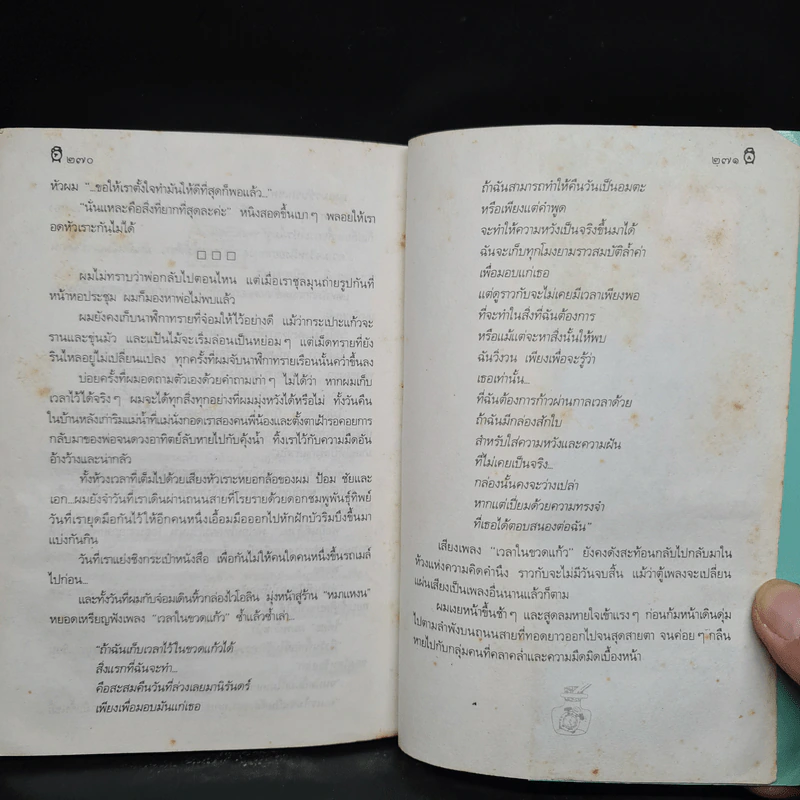 ๒๗๐
หัวผม "...ขอให้เราตั้งใจทำมันให้ดีที่สุดก็พอแล้ว..."
"นั่นแหละคือสิ่งที่ยากที่สุดละค่ะ" หนิงสอดขึ้นเบาๆ พลอยให้เรา
อดหัวเราะกันไม่ได้
ผมไม่ทราบว่าพ่อกลับไปตอนไหน แต่เมื่อเราชุลมุนถ่ายรูปกันที่
หน้าหอประชุม ผมก็มองหาพ่อไม่พบแล้ว
ผมยังคงเก็บนาฬิกาทรายที่จ้อมให้ไว้อย่างดี แม้ว่ากระเปาะแก้วจะ
รานและขุ่นมัว และแป้นไม้จะเริ่มล่อนเป็นหย่อมๆ แต่เม็ดทรายที่ยัง
รินไหลอยู่ไม่เปลี่ยนแปลง ทุกครั้งที่ผมจับนาฬิกาทรายเรือนนั้นคว่ำขึ้นลง
บ่อยครั้งที่ผมอดถามตัวเองด้วยคำถามเก่าๆ ไม่ได้ว่า หากผมเก็บ
เวลาไว้ได้จริงๆ ผมจะได้ทุกสิ่งทุกอย่างที่ผมมุ่งหวังได้หรือไม่ ทั้งวันคืน
ในบ้านหลังเก่าริมแม่น้ำที่แม่นั่งกอดเราสองคนพี่น้องและตั้งตาเฝ้ารอคอยการ
กลับมาของพ่อจนดวงอาทิตย์ลับหายไปกับคุ้งน้ำ ทิ้งเราไว้กับความมืดอัน
อ้างว้างและน่ากลัว
ทั้งห้วงเวลาที่เต็มไปด้วยเสียงหัวเราะหยอกล้อของผม ป้อม ชัยและ
เอก...ผมยังจำวันที่เราเดินผ่านถนนสายที่โรยรายด้วยดอกชมพูพันธุ์ทิพย์
วันที่เรายุดมือกันไว้ให้อีกคนหนึ่งเอื้อมมือออกไปหักฝักบัวริมบึงขึ้นมา
แบ่งกันกิน
วันที่เราแย่งชิงกระเป๋าหนังสือ เพื่อกันไม่ให้คนใดคนหนึ่งขึ้นรถเมล์
ไปก่อน...
และทั้งวันที่ผมกับจ้อมเดินหิ้วกล่องไวโอลิน มุ่งหน้าสู่ร้าน "หมาแหงน"
หยอดเหรียญฟังเพลง "เวลาในขวดแก้ว" ซ้ำแล้วซ้ำเล่า...
"ถ้าฉันเก็บเวลาไว้ในขวดแก้วได้
สิ่งแรกที่ฉันจะทำ...
คือสะสมคืนวันที่ล่วงเลยมานิรันดร์
เพียงเพื่อมอบมันแก่เธอ
๒๗๑
ถ้าฉันสามารถทำให้คืนวันเป็นอมตะ
หรือเพียงแต่คำพูด
จะทำให้ความหวังเป็นจริงขึ้นมาได้
ฉันจะเก็บทุกโมงยามราวสมบัติล้ำค่า
เพื่อมอบแก่เธอ
แต่ดูราวกับจะไม่เคยมีเวลาเพียงพอ
ที่จะทำในสิ่งที่ฉันต้องการ
หรือแม้แต่จะหาสิ่งนั้นให้พบ
ฉันวิ่งวน เพียงเพื่อจะรู้ว่า
เธอเท่านั้น...
ที่ฉันต้องการก้าวผ่านกาลเวลาด้วย
ถ้าฉันมีกล่องสักใบ
สำหรับใส่ความหวังและความฝัน
ที่ไม่เคยเป็นจริง...
กล่องนั้นคงจะว่างเปล่า
หากแต่เปี่ยมด้วยความทรงจำ
ที่เธอได้ตอบสนองต่อฉัน"
เสียงเพลง "เวลาในขวดแก้ว" ยังคงดังสะท้อนกลับไปกลับมาใน
ห้วงแห่งความคิดคำนึง ราวกับจะไม่มีวันจบสิ้น แม้ว่าตู้เพลงจะเปลี่ยน
แผ่นเสียงเป็นเพลงอื่นนานแล้วก็ตาม
ผมเงยหน้าขึ้นช้าๆ และสูดลมหายใจเข้าแรงๆ ก่อนก้มหน้าเดินดุ่ม
ไปตามลำพังบนถนนสายที่ทอดยาวออกไปจนสุดสายตา จนค่อยๆ กลืน
หายไปกับกลุ่มคนที่คลาคล่ำและความมืดมิดเบื้องหน้า